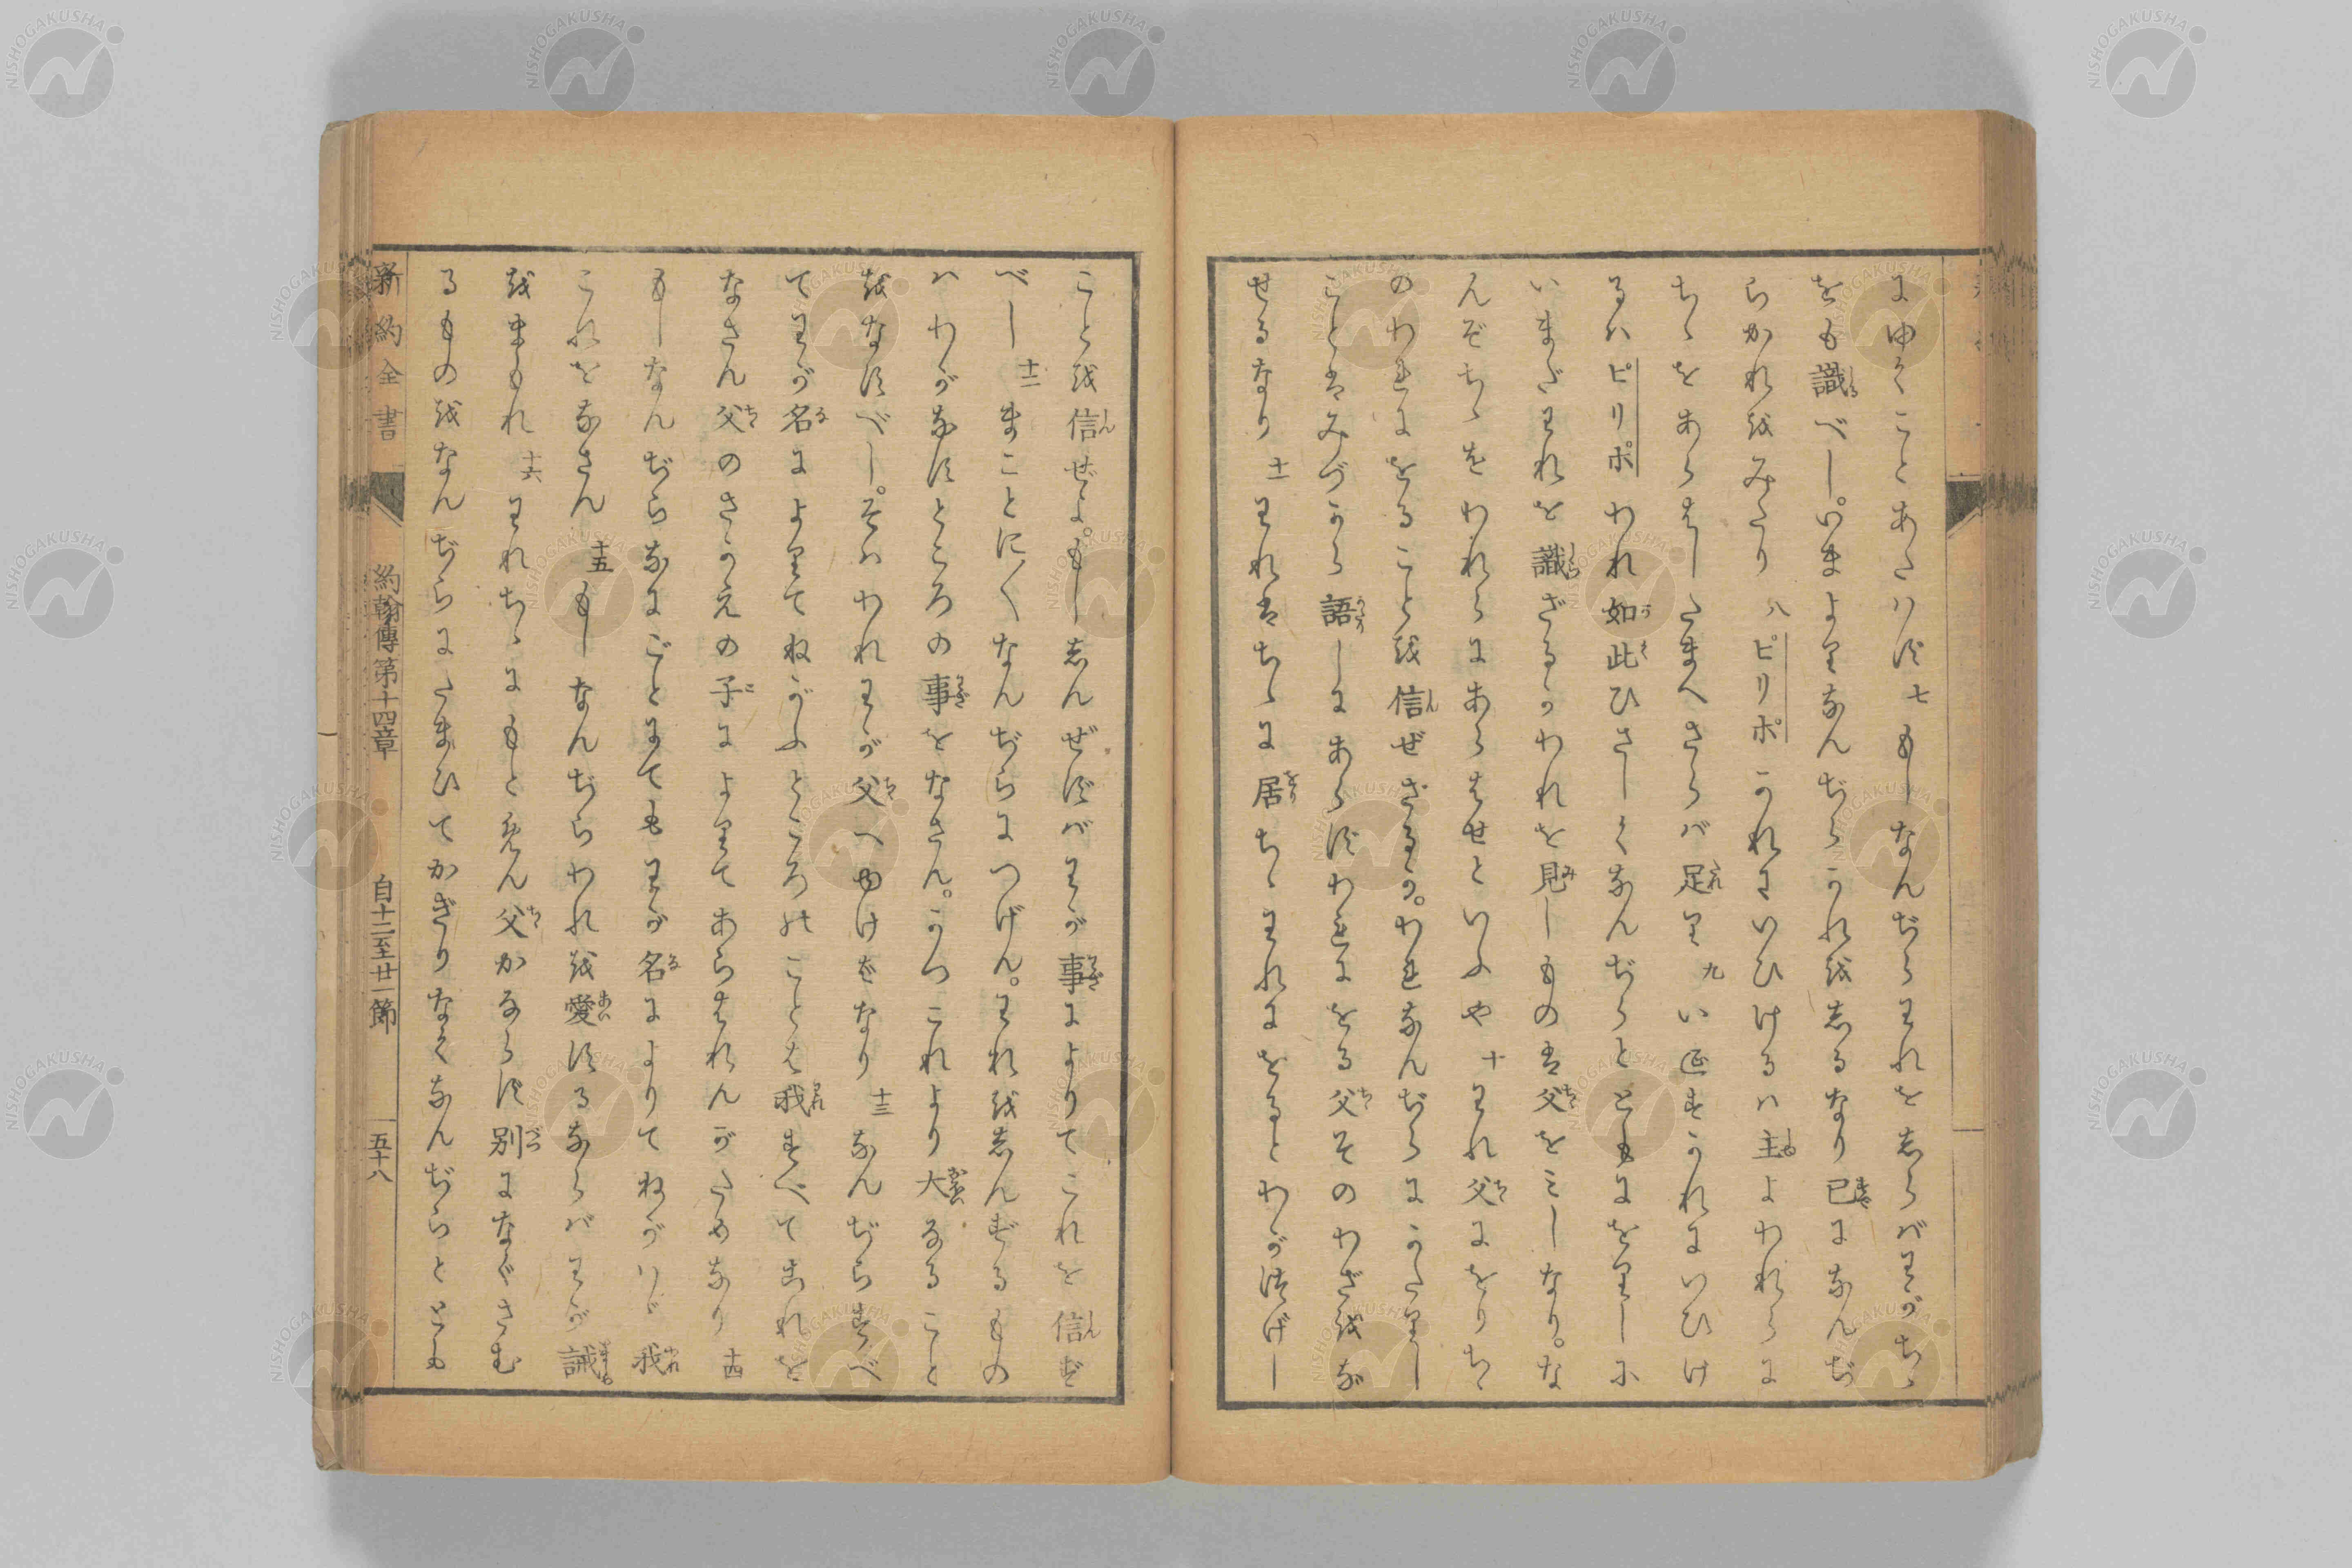 にゆくことあたはず七もしなんぢらわれをしらばわがちゝ
をも識べし。いまよりなんぢらかれをしるなり已になんぢ
らかれをみたり八ピリポかれにいひけるハ主よわれらに
ちゝをあらはしたまへさらバ足り九いゑすかれにいひけ
るハピリポわれ如此ひさしくなんぢらとともにをりしに
いまだわれを識ざるかわれを見しものは父をミしなり。な
んぞちゝをわれらにあらはせといふや十われ父にをりちゝ
のわれにをることを信ぜざるか。われなんぢらにかたりし
ことはみづから語しにあらずわれにをる父そのわざをな
せるなり十一われはちゝに居ちゝわれにをるとわが告げし
ことを信ぜよ。もししんぜずバわが事によりてこれを信ず
べし十二まことに〱なんぢらにつげん。われをしんずるもの
ハわがなすところの事をなさん。かつこれより大なること
をなすべし。そハわれわが父へゆけばなり十三なんぢらすべ
てわが名によりてねがふところのことは我すべてこれを
なさん父のさかえの子によりてあらはれんがためなり十四
もしなんぢらなにごとにてもわが名によりてねがハヾ我
これをなさん十五もしなんぢらわれを愛するならバわが誡
をまもれ十六われちゝにもとめん父かならず別になぐさむ
るものをなんぢらにたまひてかぎりなくなんぢらととも
新約全書 約翰傳第十四章 自十二至廿一節 五十八
NISHOGAKUSHA